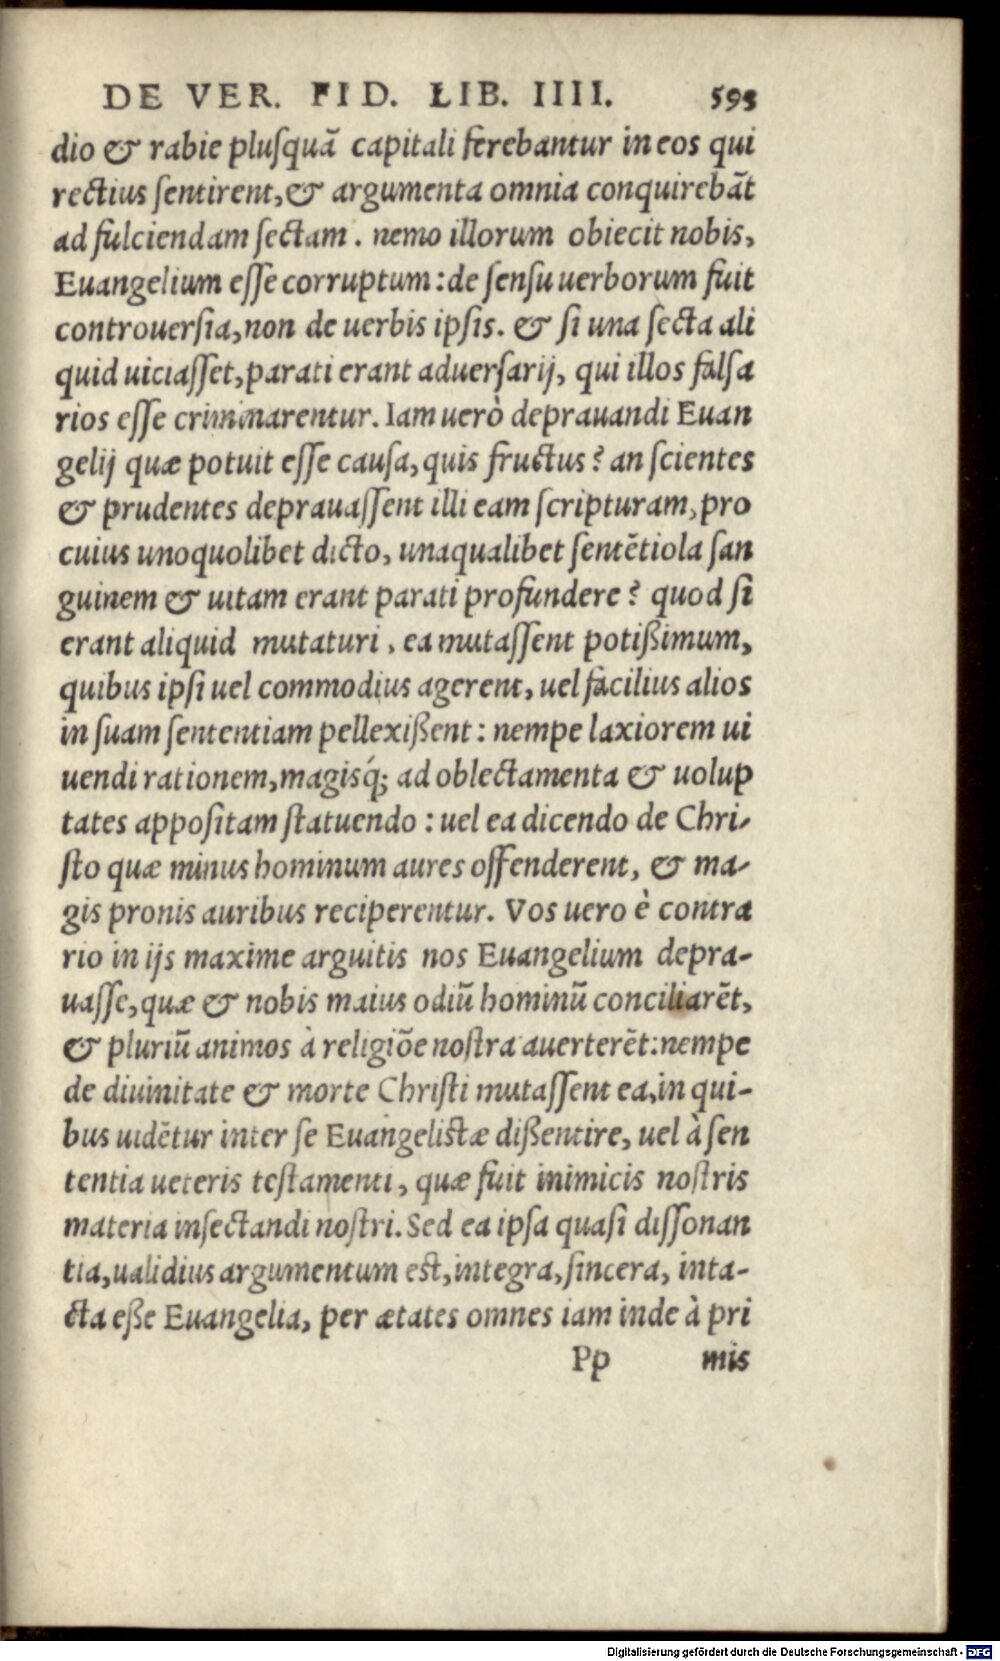 DE VER. FID. LIB. IIII. 593
dio & rabie plusquã capitali ferebantur in eos qui
rectius sentirent, & argumenta omnia conquirebãt
ad fulciendam sectam. nemo illorum obiecit nobis,
Euangelium esse corruptum: de sensu uerborum fuit
controuersia, non de uerbis ipsis. & si una secta ali
quid uiciasset, parati erant aduersarij, qui illos falsa
rios esse criminarentur. Iam uerò deprauandi Euan
gelij quæ potuit esse causa, quis fructus? an scientes
& prudentes deprauassent illi eam scripturam, pro
cuius unoquolibet dicto, unaqualibet sentẽtiola san
guinem & uitam erant parati profundere? quod si
erant aliquid mutaturi, ea mutassent potißimum,
quibus ipsi uel commodius agerent, uel facilius alios
in suam sententiam pellexißent: nempe laxiorem ui
uendi rationem, magisq́; ad oblectamenta & uolup
tates appositam statuendo: uel ea dicendo de Chri-
sto quæ minus hominum aures offenderent, & ma-
gis pronis auribus reciperentur. Vos uero è contra
rio in ijs maxime arguitis nos Euangelium depra-
uasse, quæ & nobis maius odiũ hominũ conciliarẽt,
& pluriũ animos à religiõe nostra auerterẽt: nempe
de diuinitate & morte Christi mutassent ea, in qui-
bus uidẽtur inter se Euangelistæ dißentire, uel à sen
tentia ueteris testamenti, quæ fuit inimicis nostris
materia insectandi nostri. Sed ea ipsa quasi dissonan
tia, ualidius argumentum est, integra, sincera, inta-
cta eße Euangelia, per ætates omnes iam inde à pri
Pp mis
Digitalisierung gefördert durch die Deutsche Forschungsgemeinschaft - DFG